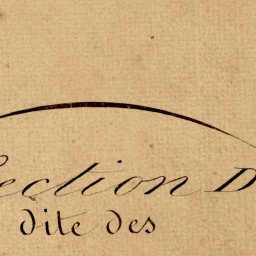 Section D
dite des